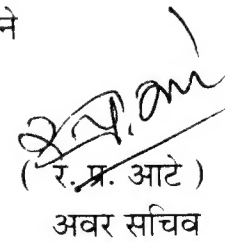 ने
( र. प्र. आटे )
अवर सचिव